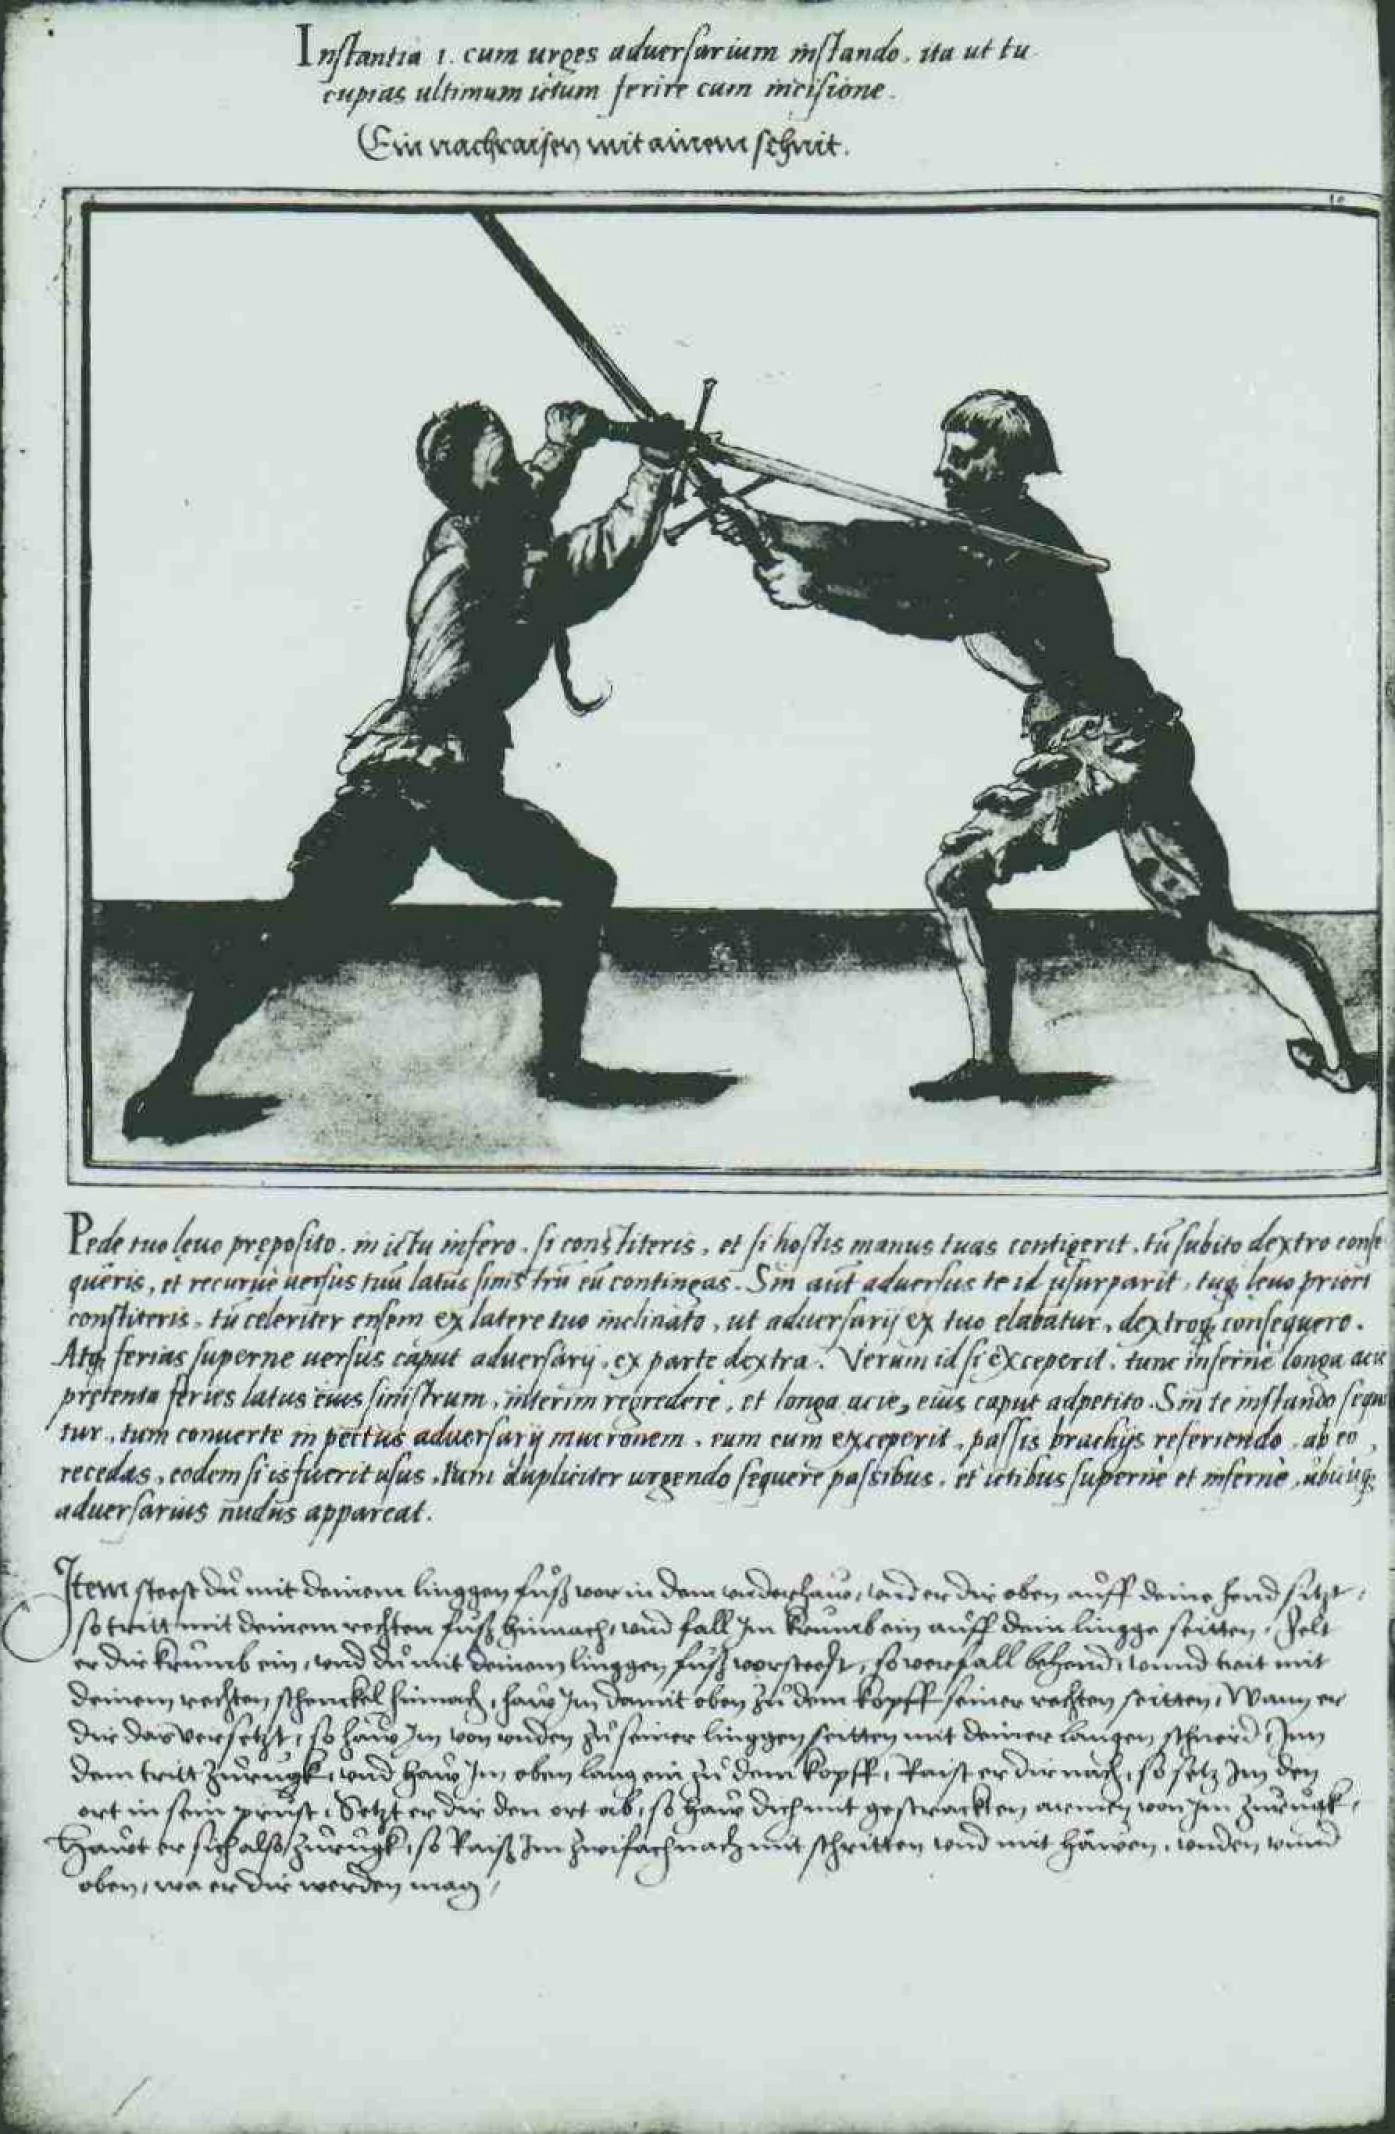 Instantia 1. cum urges adversarium instando, ita ut tu
cupias ultimum ictum ferire cum incisione.
Ein nachraisen mit ainem schnit.
Pede tuo lęvo pręposito, in ictu infero, si constiteris, et si hostis manus tuas contigerit, tū subito dextro conse
quēris, et recurvè versus tuū latus sinistrū eū contingas. Sin aūt adversus te id usurparit, tuq lęvo priori
constiteris, tū celeriter ensem ex latere tuo inclinato, ut adversarij ex tuo elabatur, dextroq consequere.
Atq ferias superne versus caput adversarij, ex parte dextra. Verum id si exceperit, tunc infernè longa acie
prętenta feries latus eius sinistrum, interim regredere, et longa acie, eius caput adpetito. Sin te instando sequi
tur, tum converte in pectus adversarij mucronem, eum cum exceperit, passis brachijs referiendo, ab eo
recedas, eodem si is fuerit usus, tum dupliciter urgendo sequere passibus, et ictibus supernè et infernè, ubiuq
adversarius nudus appareat.
Item steest du mit deinem linggen fuß vor in dem underhaw, und er dir oben auff deine hend sitzt,
so tritt mit deinem rechten fuß hinnach, und fall Im krumb ein auff dein lingge seitten, Felt
er dir krumb ein, und du mit deinem linggen fuß vorsteest, so verfall behend, unnd trit mit
deinem rechten schenckel hinnach, haw Im damit oben zu dem kopff seiner rechten seitten, Wann er
dir das versetzt, so haw Im von unden zu seiner linggen seitten mit deiner langen schneid, Inn
dem tritt zurugk, und haw Im oben lang ein zu dem kopff, Raist er dir nach, so setz Im den
ort in sein prust, Setzt er dir den ort ab, so haw dich mit gestrackten armen von Im zurugk,
Hawt er sich also zurugk, so Raiß Im zwifach nach mit schritten und mit häwen, unden unnd
oben, wa er dir werden mag,